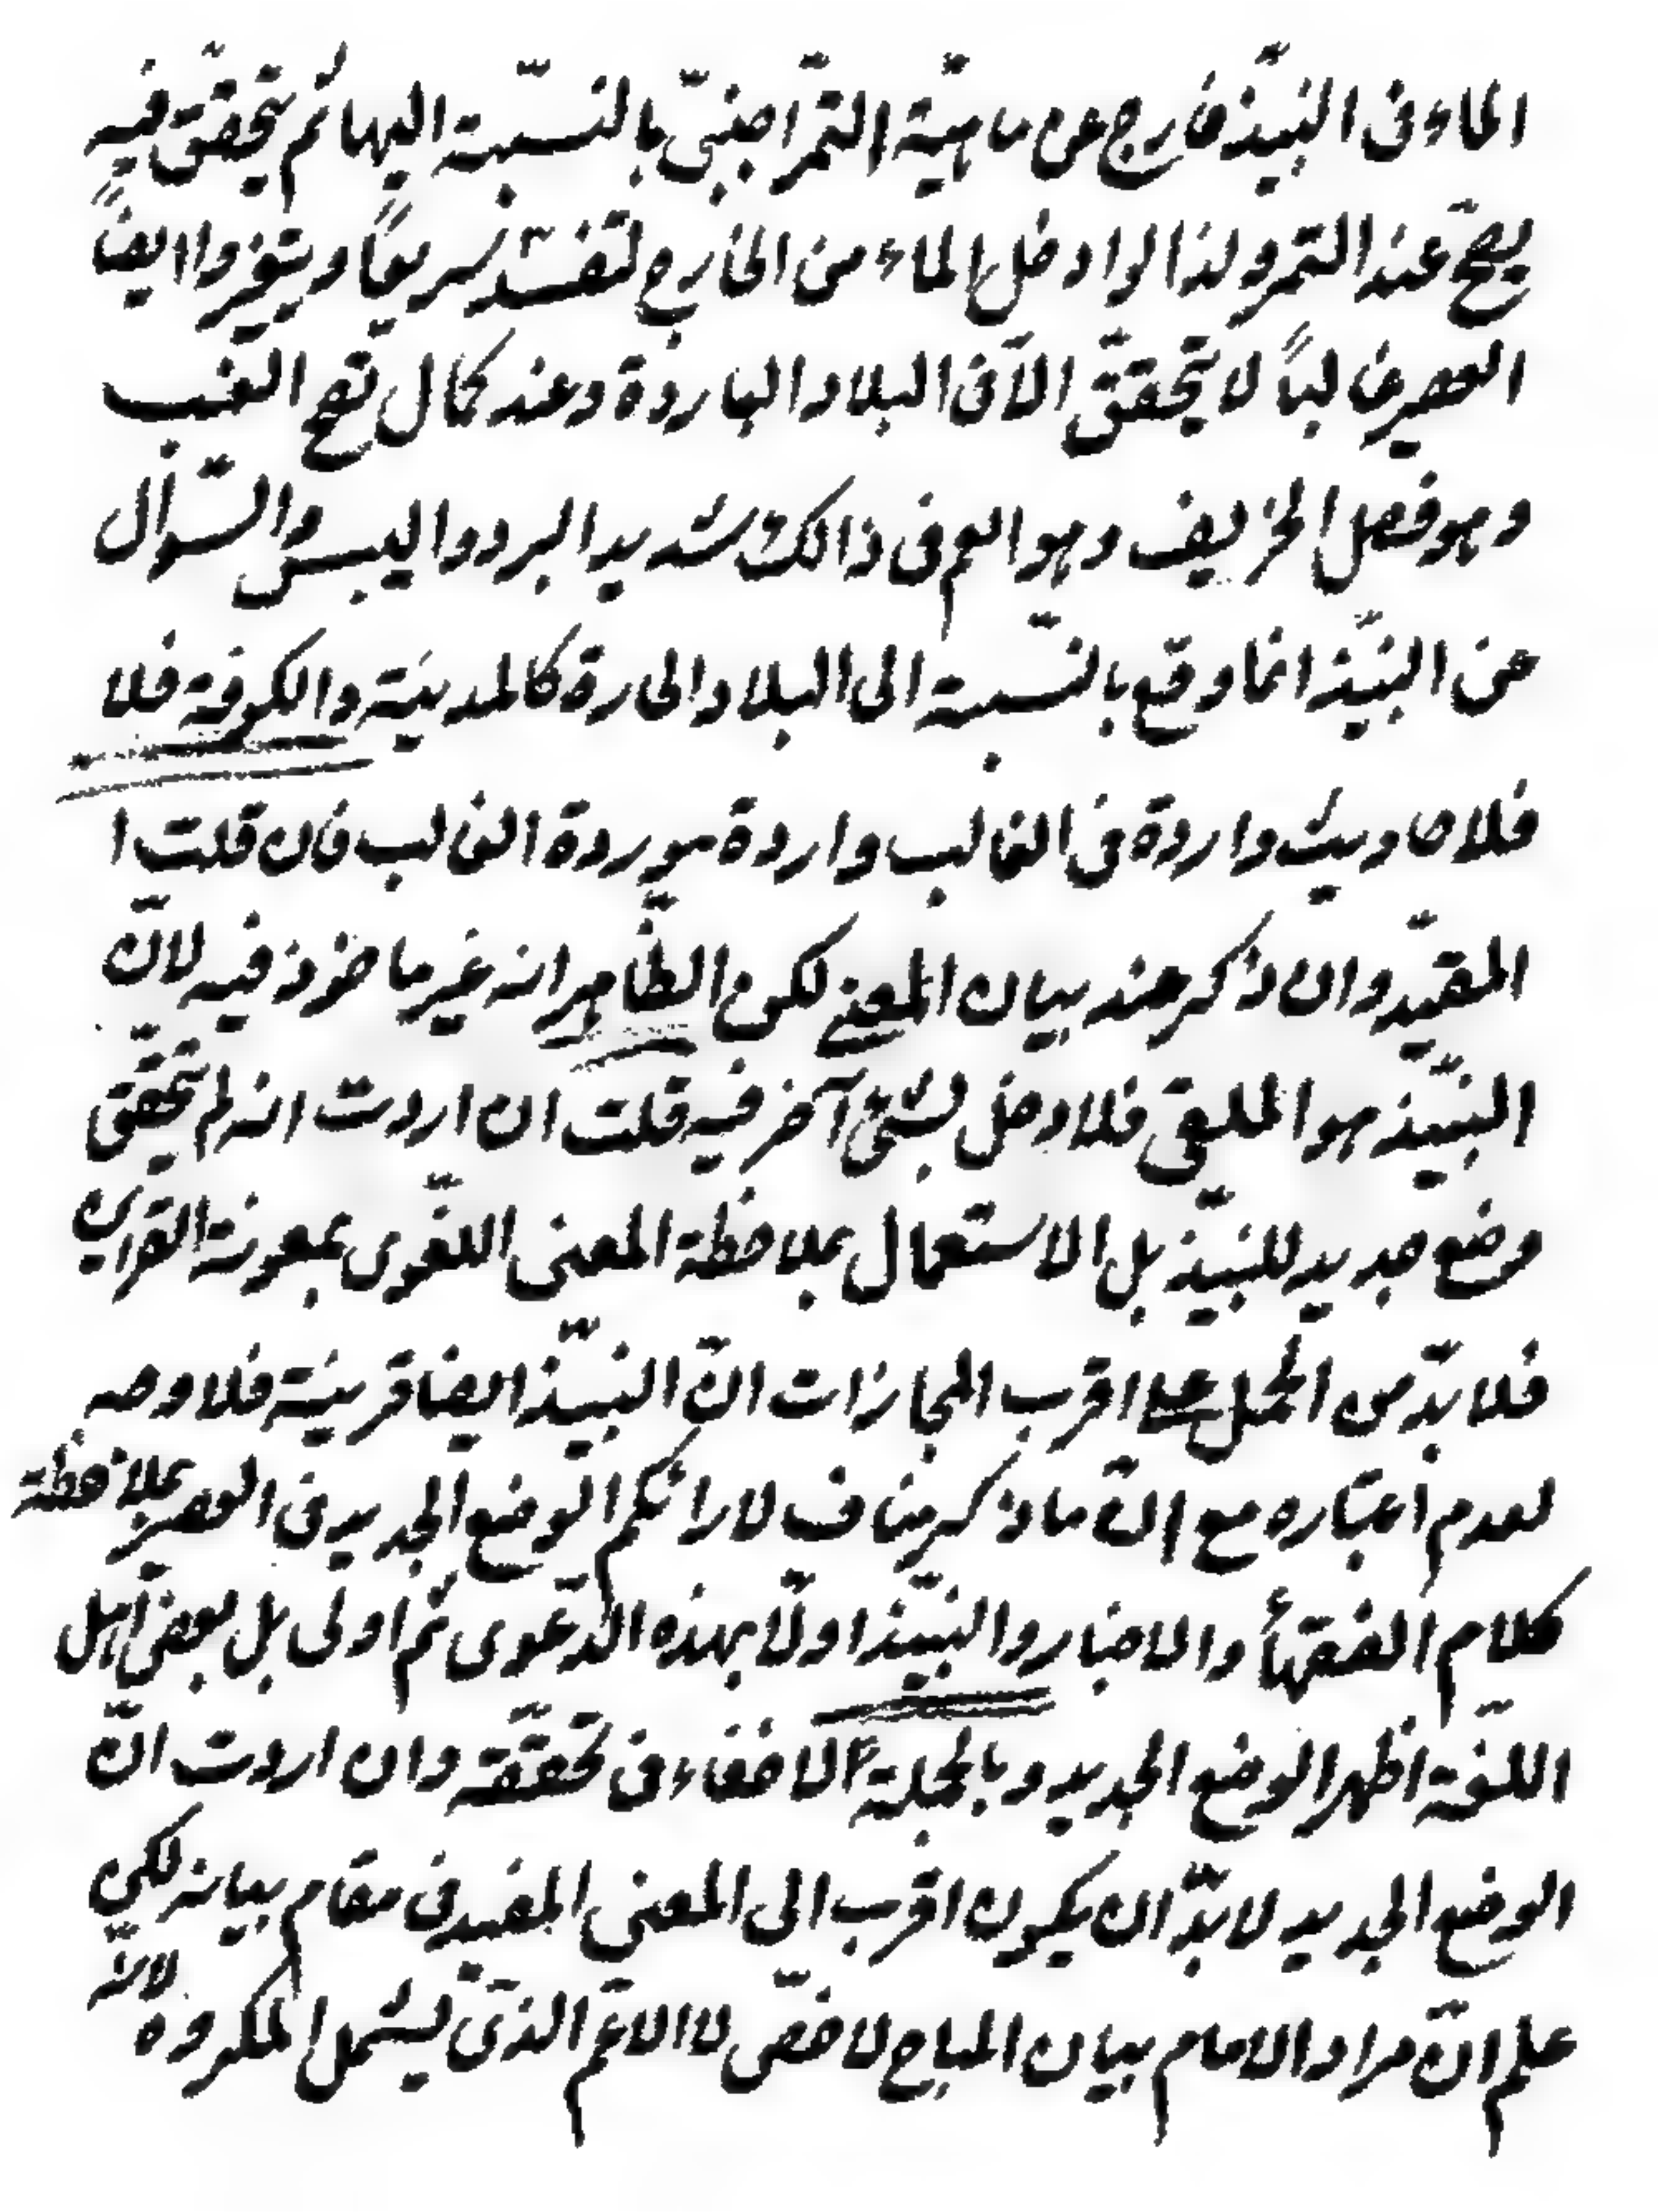 الماء فى النبيّذ خارج عن ماهيّة التمّر اجنبىّ بالنسّبة اليها ثم يتحقّق فيه
يصحّ عند التمر ولذا لو ادخل الماء من الخارج لتفسّد سريعًا ويتغير وايضًا
العصير غالبًا لا يتحقّق الّا فى البلاد الباردة وعند كمال نضج العنب
وهو فصل الخريف وهو اسم فى ذالك شديد البرد واليبس والسّؤال
عن النبيّذ انما وقع بالنسّبة الى البلاد الحارة كالمدينة والكوفة فلا
فلاحاديث واردة فى الغالب واردة موردة الغالب فان قلت ا
المقيّد وان ذكر عند بيان المعنى لكن الظّاهر انه غير ماخوذ فيه لانّ
النبيّذ هو الملقى فلا دخل لشئ آخر فيه قلت ان اردت انه لم يتحقّق
وضع جديد للنبيّذ بل الاستعمال بملاحظة المعنى اللغّوى بمعونة القراين
فلا بدّ من الحمل على اقرب المجازات انّ النبيّذ ايضا قرينة فلا وجه
لعدم اعتباره مع انّ ما ذكر مناف لارائكم الوضع الجديد فى العصير بملاحظة
كلام الفقهأ والاخبار والنبيّذ اولّا بهذه الدّعوى ثم اولى بل بعض اهل
اللغّة اظهر الوضع الجديد وبالجملة لا خفاء فى تحقّقه وان اردت انّ
الوضع الجديد لا بدّ ان يكون اقرب الى المعنى المفيد فى مقام بيانه لكن
علم انّ مراد الامام بيان المباح لاخصّ لا الاعّم الذّى يشمل المكروه لانّه